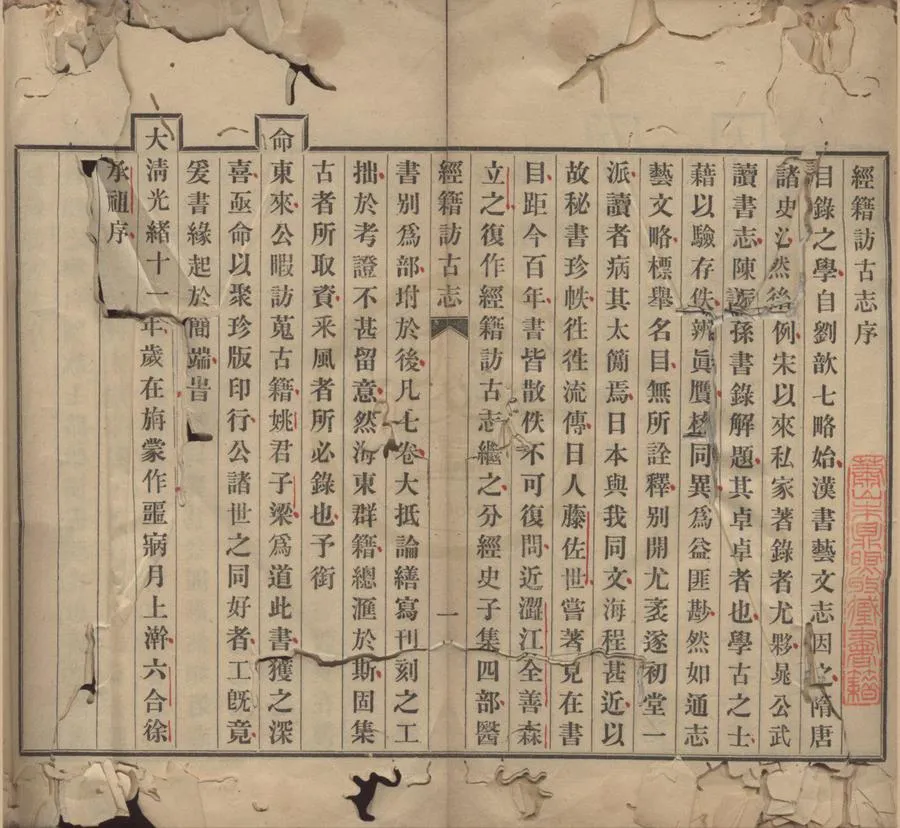 經籍訪古志序
目錄之學自劉歆七略始漢書藝文志因之隋唐
諸史然後例宋以來私家著錄者尤夥晁公武
讀書志陳振孫書錄解題其卓卓者也學古之士
藉以驗存佚辨眞贋校同異爲益匪尠然如通志
藝文略標舉名目無所詮釋別開尤袤遂初堂一
派讀者病其太簡焉日本與我同文海程甚近以
故秘書珍帙徃徃流傳日人藤佐世嘗著見在書
目距今百年書皆散佚不可復問近澀江全善森
立之復作經籍訪古志繼之分經史子集四部醫
經籍訪古志 一
書別爲部坿於後凡七卷大抵論繕寫刊刻之工
拙於考證不甚留意然海東群籍總滙於斯固集
古者所取資采風者所必錄也予銜
命東來公暇訪蒐古籍姚君子梁爲道此書獲之深
喜亟命以聚珍版印行公諸世之同好者工旣竟
爰書緣起於簡端旹
大淸光緒十一年歲在旃蒙作噩寎月上澣六合徐
承祖序
蕭山朱鼎煦收藏書籍